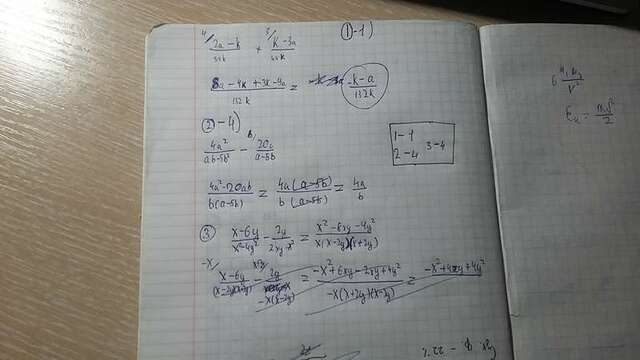 4/ 2a-k/33k + 3/ k-3a/44k ①-1)
8a-4k+3k-9a/132k = -k-a/132k
②-4)
4a²/ab-5b² - b/ 20a/a-5b
1-1
2-4 3-4
4a²-20ab/b(a-5b) = 4a(a-5b)/b(a-5b) = 4a/b
③ x-6y/x²-4y² - 2y/2xy-x² = x²-6xy-4y²/x(x-2y)(x+2y)
-x/ x-6y/(x-2y)(x+2y) - 2y/-x(x-2y) = -x²+6xy-2xy+4y²/-x(x+2y)(x-2y) = -x²+4xy+4y²